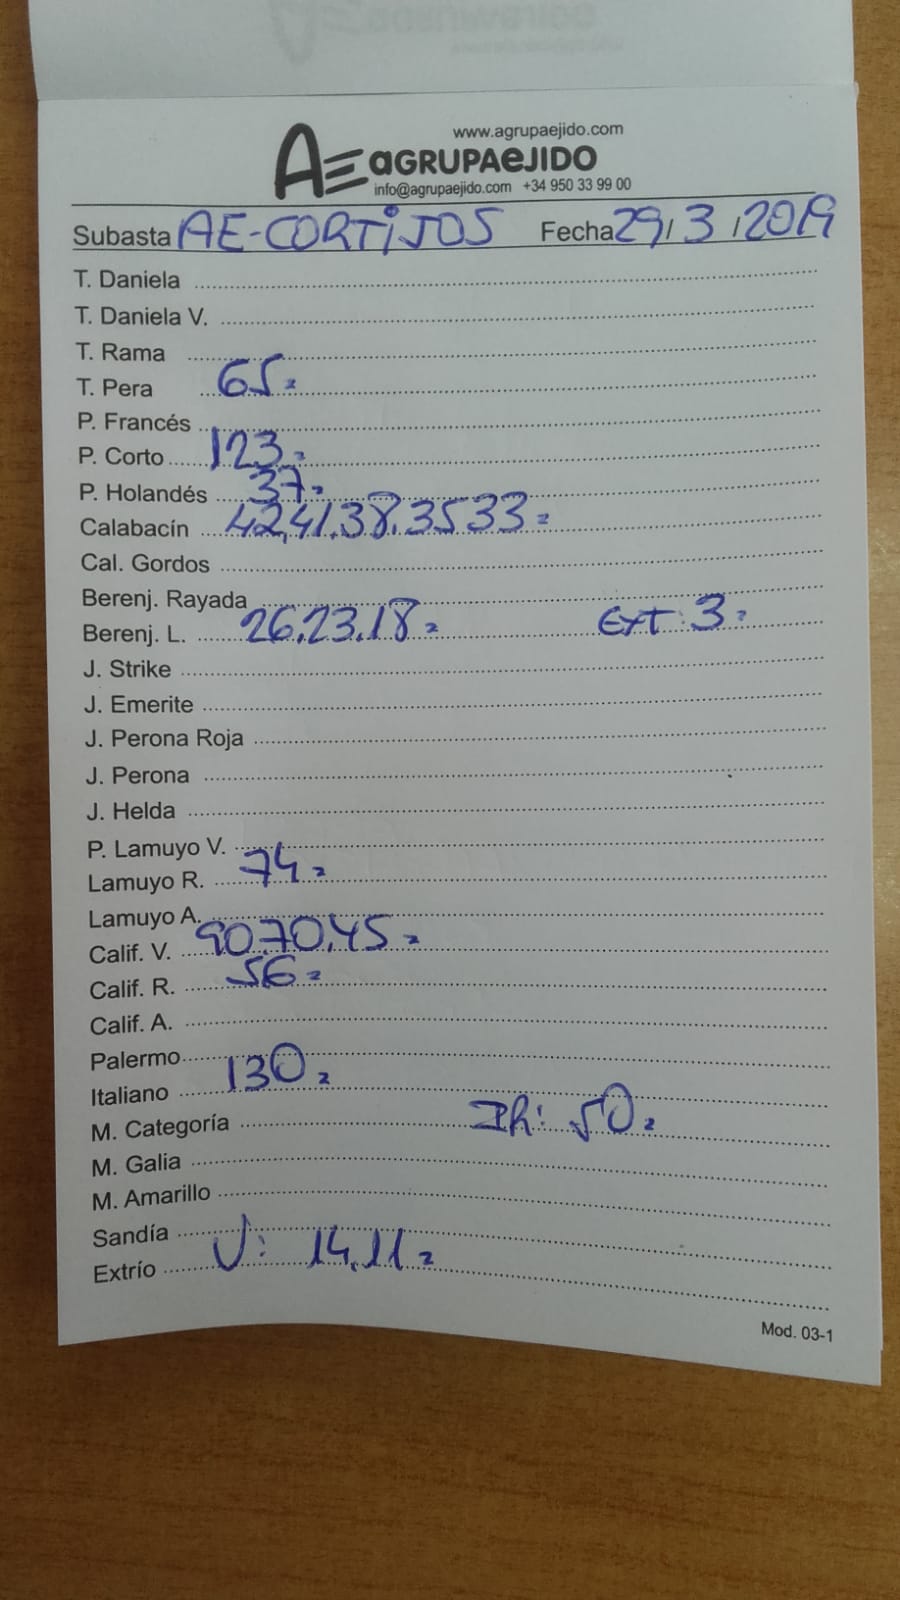 www.agrupaejido.com
AE aGRUPAeJIDO
info@agrupaejido.com +34 950 33 99 00
Subasta AE-CORTiJOS Fecha 29/3/2019
T. Daniela
T. Daniela V.
T. Rama
T. Pera 65=
P. Francés
P. Corto 123=
P. Holandés 37=
Calabacín 42,41,38,35 33=
Cal. Gordos
Berenj. Rayada
Berenj. L. 26,23,18= EXT: 3=
J. Strike
J. Emerite
J. Perona Roja
J. Perona
J. Helda
P. Lamuyo V.
Lamuyo R. 74=
Lamuyo A.
Calif. V. 90,70,45=
Calif. R. 56=
Calif. A.
Palermo
Italiano 130=
M. Categoría : 50=
M. Galia
M. Amarillo
Sandía
Extrío V: 14,11=
Mod. 03-1